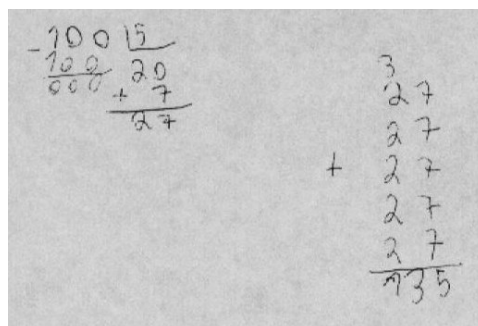 - 100 | 5
100 20
000 + 7
27
3
27
27
+ 27
27
27
135